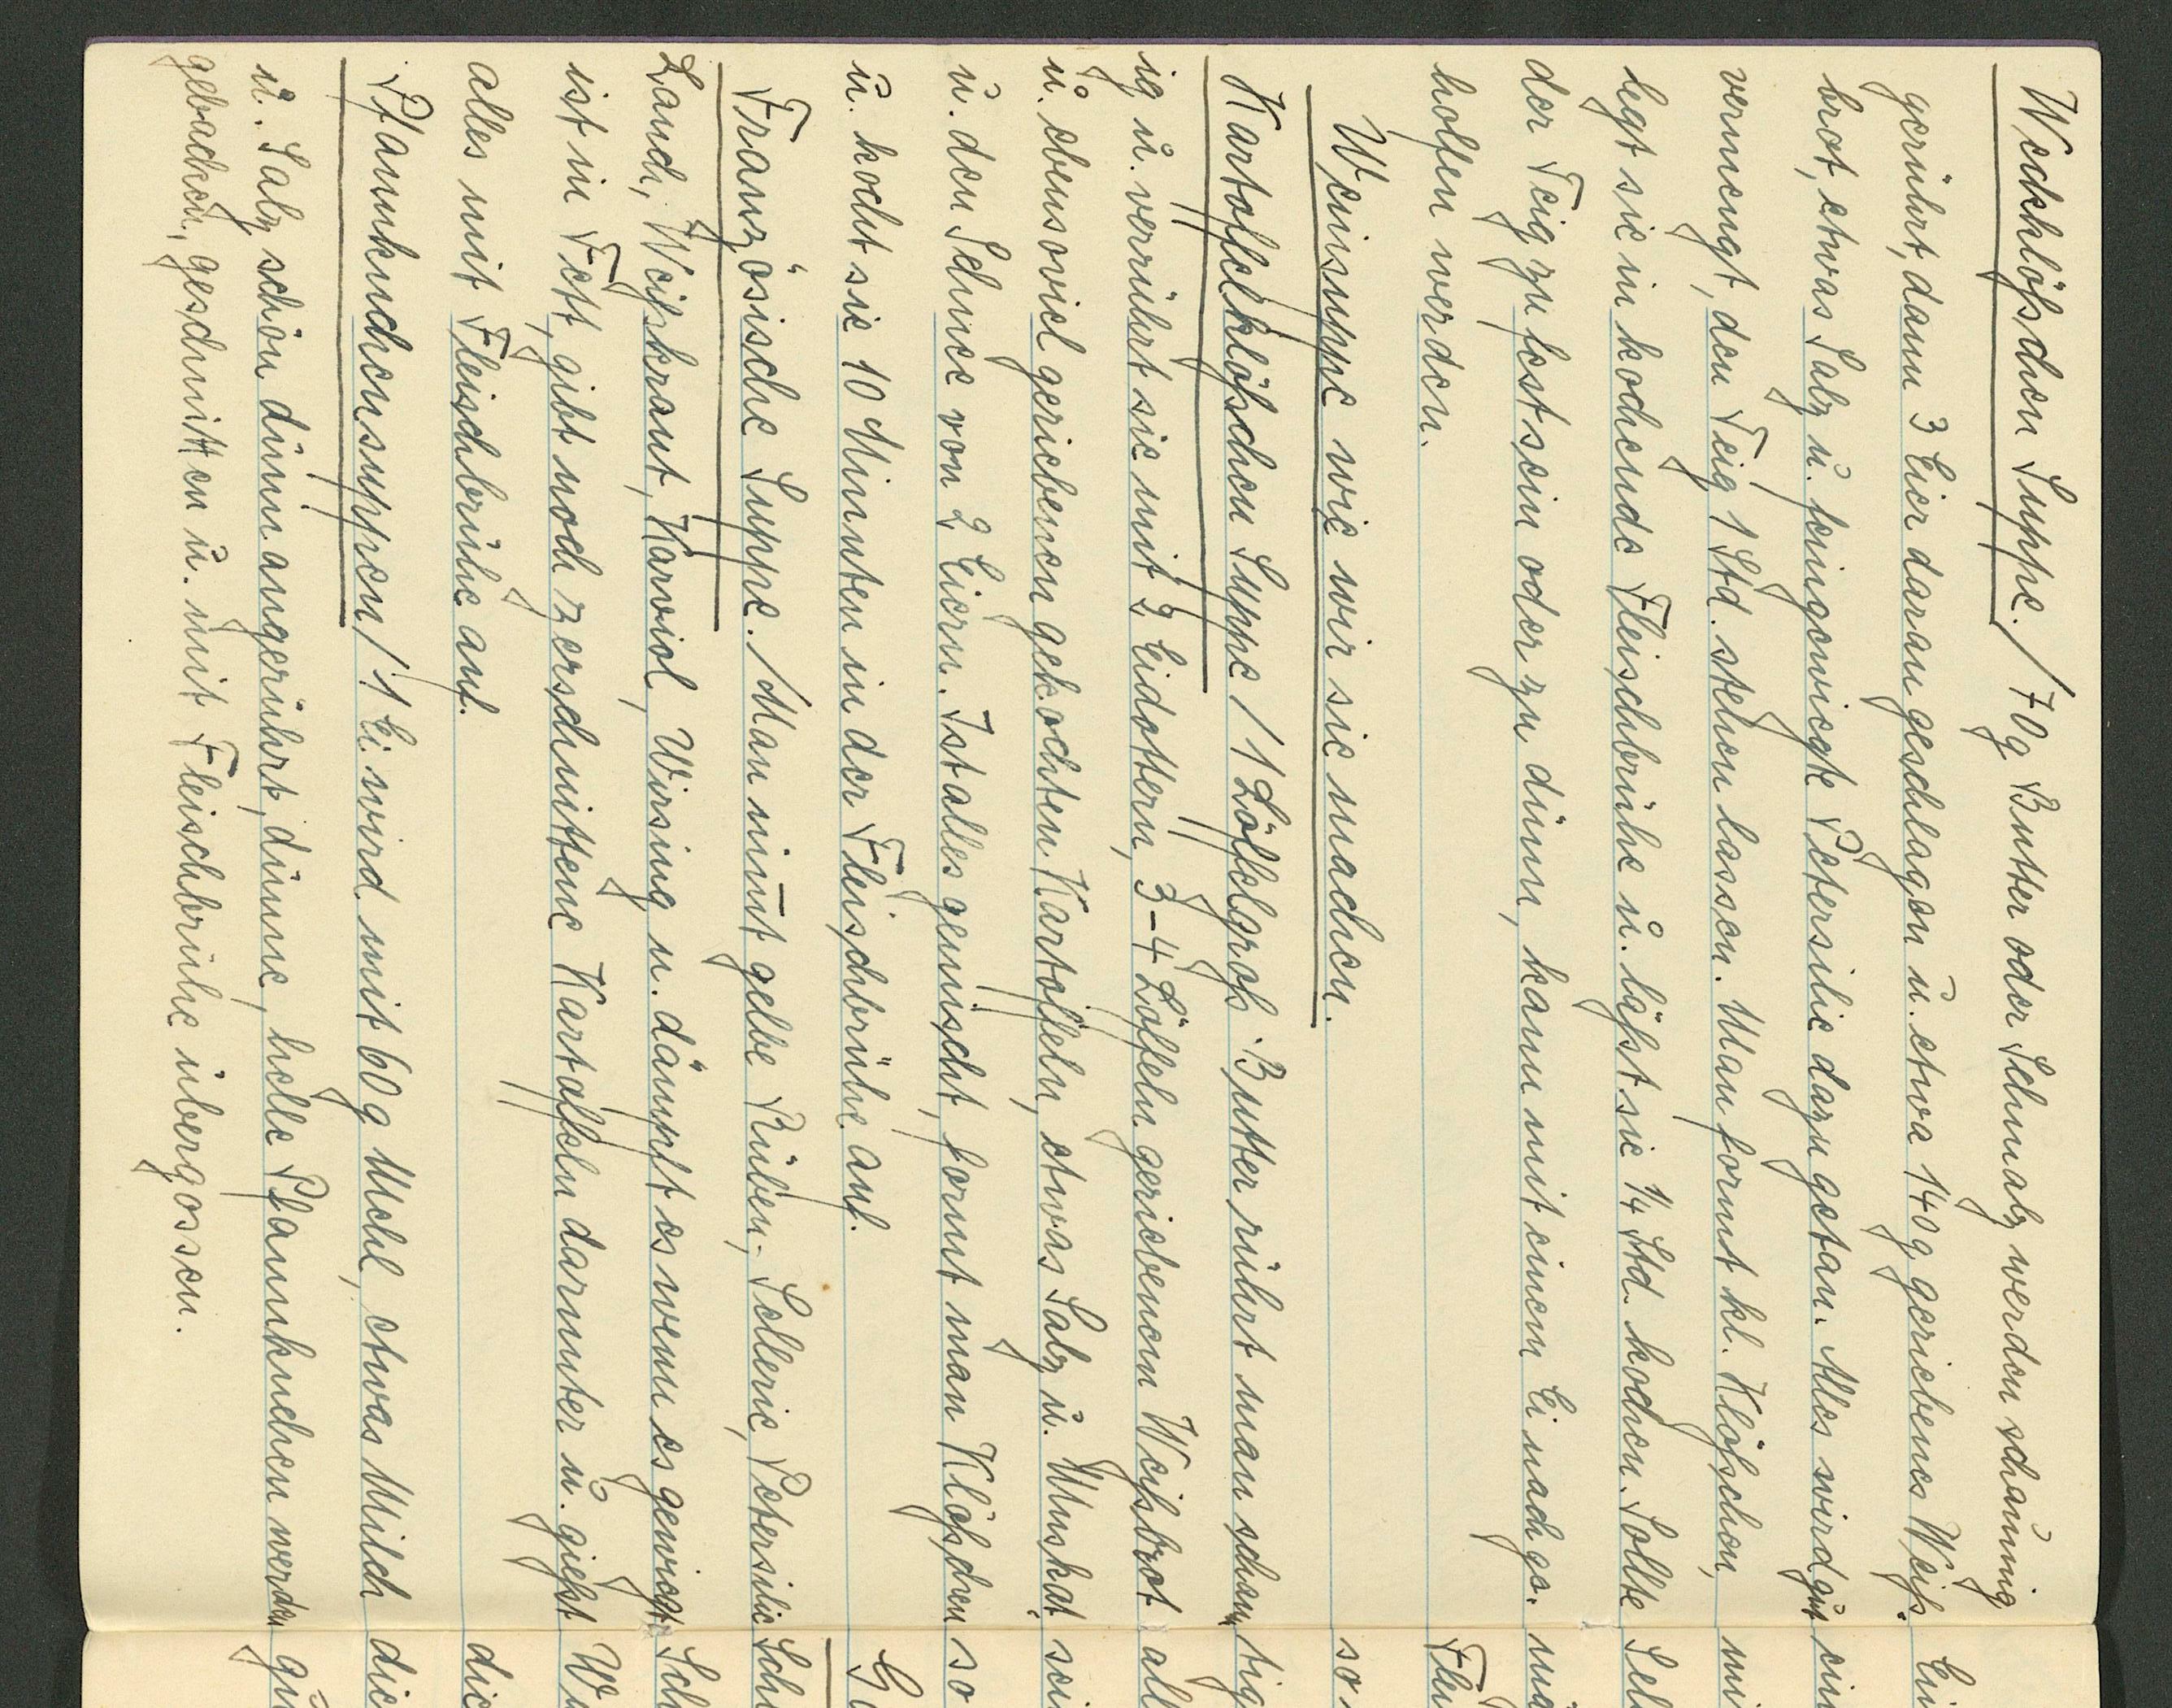 Weckklößchen Suppe. / 70g Butter oder Schmalz werden schaumig
gerührt, dann 3 Eier daran geschlagen u. etwa 140g geriebenes Weiß-
brot, etwas Salz u. feingewiegte Petersilie dazu getan. Alles wird gut
vermengt, den Teig 1 Std. stehen lassen. Man formt kl. Klößchen,
legt sie in kochende Fleischbrühe u. läßt sie 1/4 Std. kochen. Sollte
der Teig zu fest sein oder zu dünn, kann mit einem Ei nachge-
holfen werden.
Weinsuppe wie wir sie machen.
Kartoffelklößchen Suppe / 1 Löffelgroß Butter rührt man schaum
ig u. verrührt sie mit 2 Eidottern, 3-4 Löffeln geriebenem Weißbrot
u. ebensoviel geriebenen gekochten Kartoffeln, etwas Salz u. Muskat
u. den Schnee von 2 Eiern. Ist alles gemischt, formt man Klößchen
u. kocht sie 10 Minuten in der Fleischbrühe auf.
Französische Suppe. / Man nimt gelbe Rüben, Sellerie, Petersilie
Lauch, Weißkraut, Karviol, Wirsing u. dämpft es wenn es gewiegt
ist in Fett, gibt noch zerschnittene Kartoffeln darunter u. gießt
alles mit Fleischbrühe auf.
Pfannkuchensuppen / 1 Ei wird mit 60g Mehl, etwas Milch
u. Salz schön dünn angerührt, dünne, helle Pfannkuchen werden
gebacken, geschnitten u. mit Fleischbrühe übergossen.